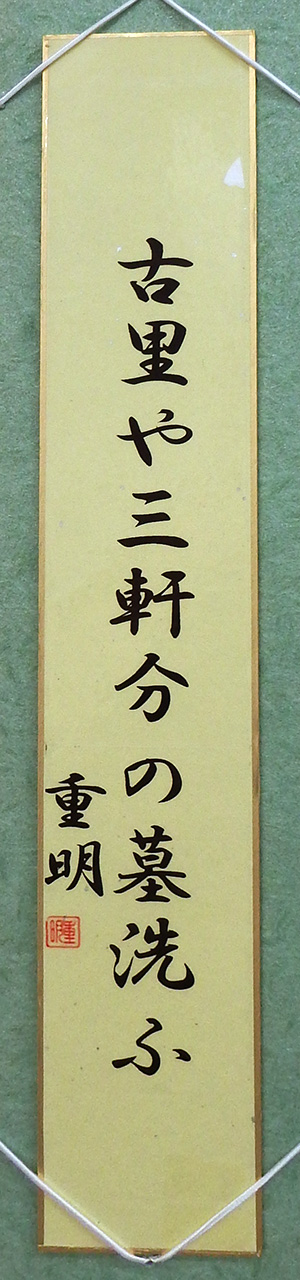 古里や三軒分の墓洗ふ
重明
重明